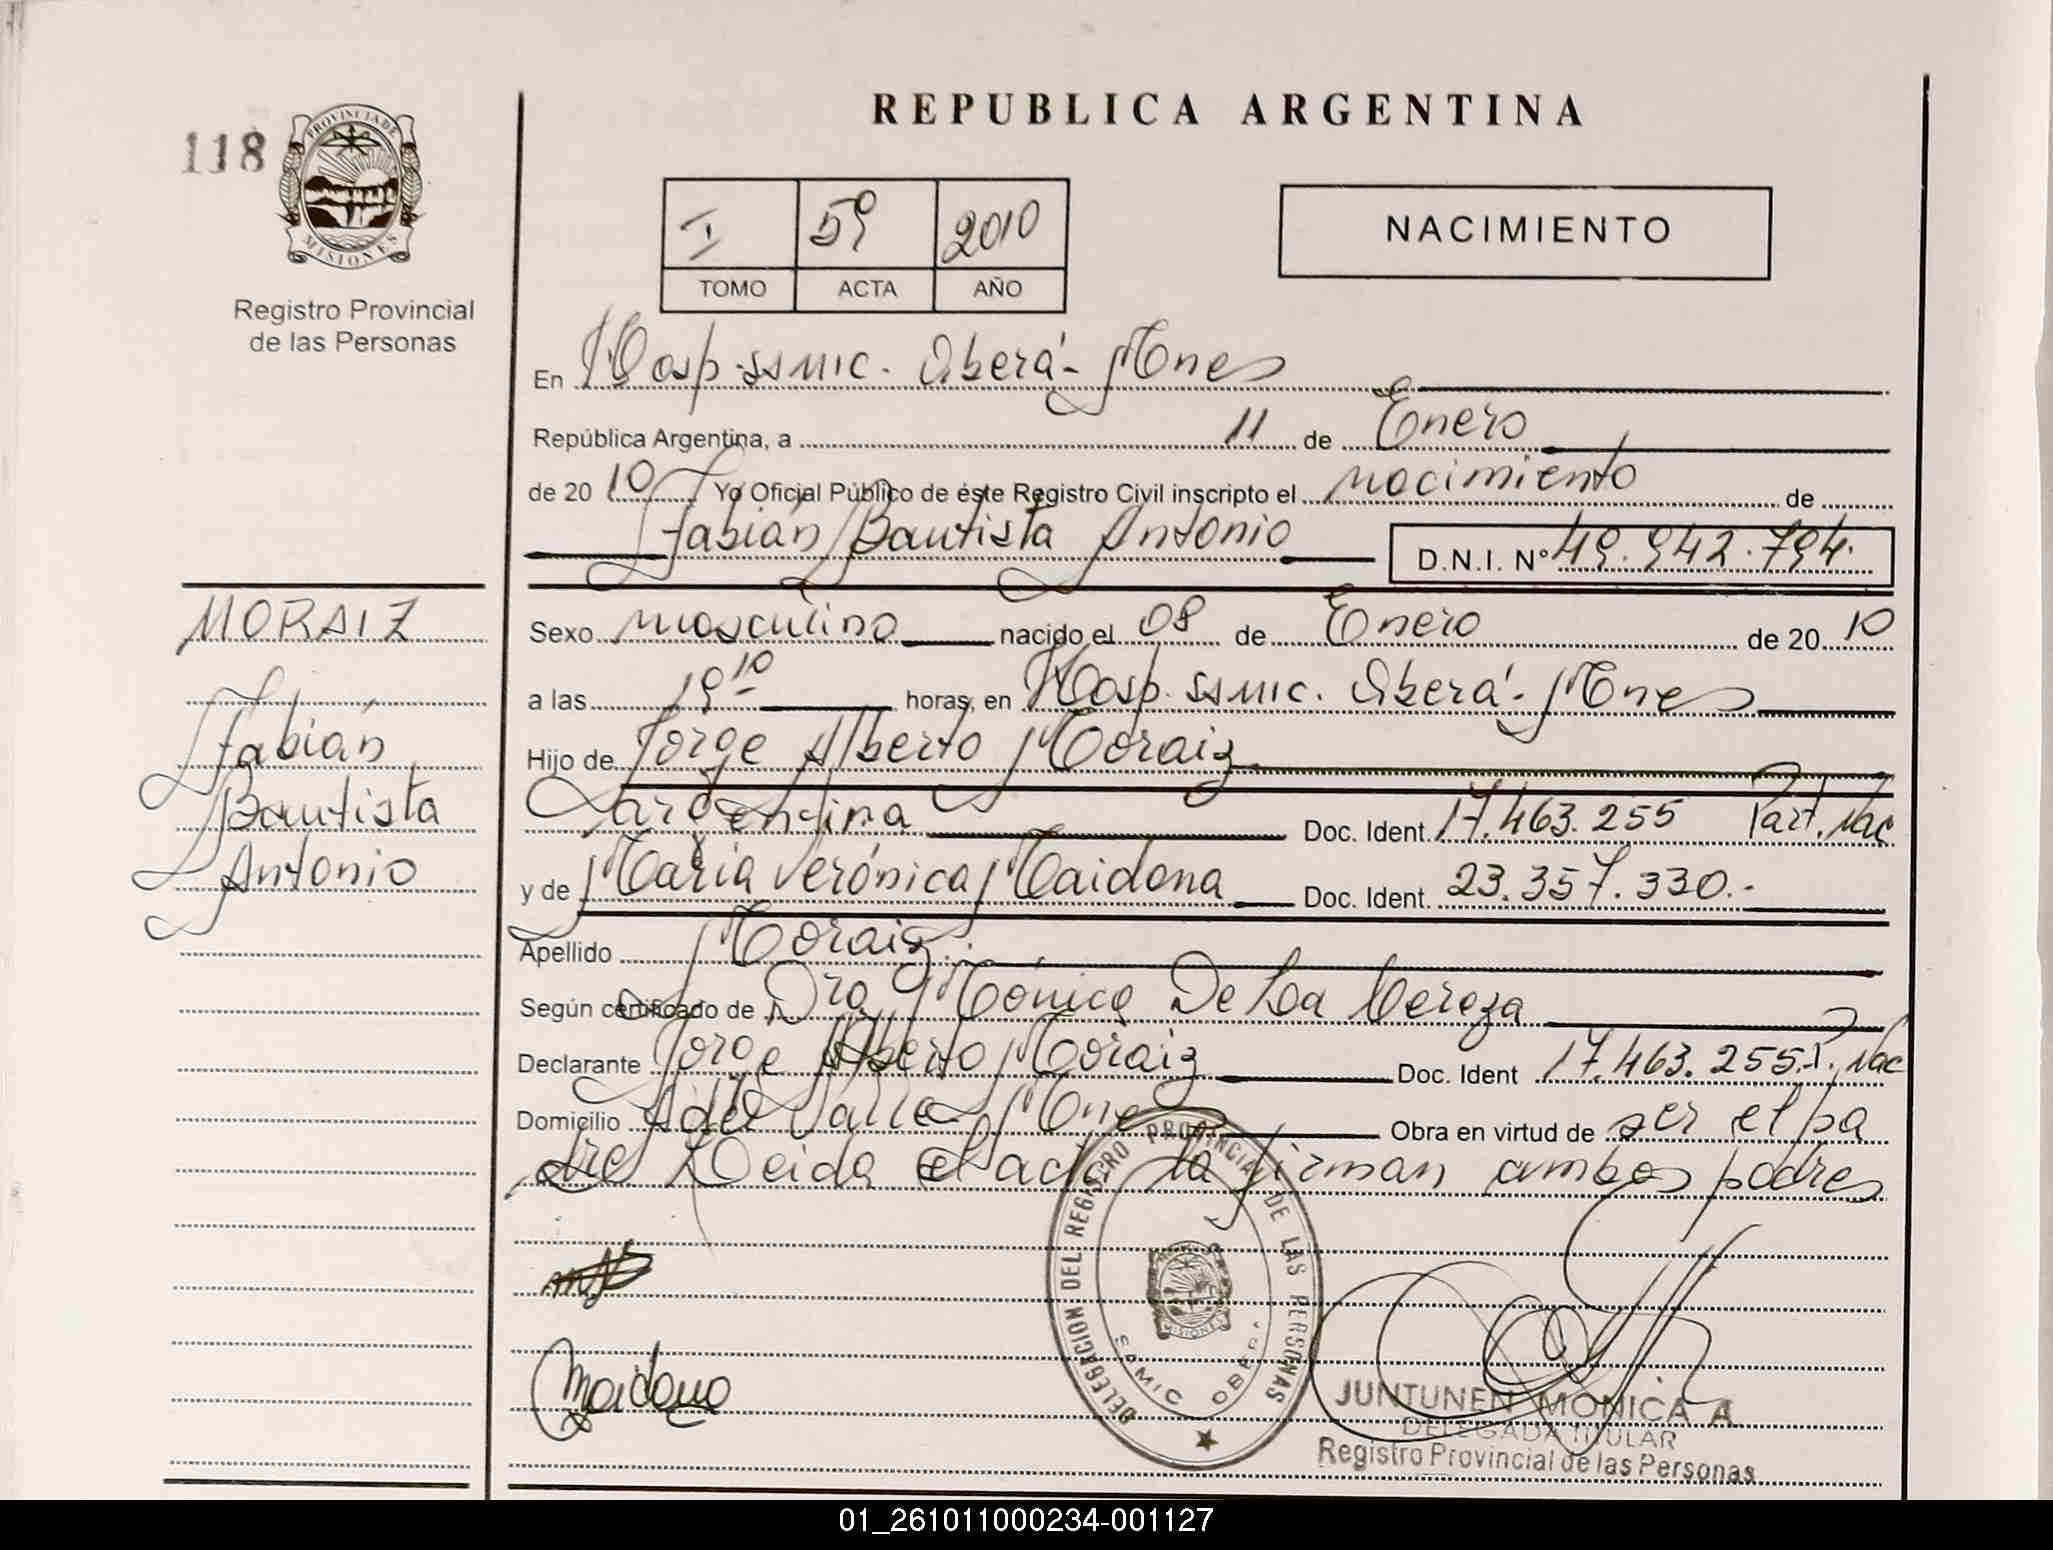 118
PROVINCIA DE
MISIONES
Registro Provincial
de las Personas
REPUBLICA ARGENTINA
I 59 2010
TOMO ACTA AÑO
NACIMIENTO
En Hosp. ssmic. Oberá - Mnes
República Argentina, a 11 de Enero
de 20 10 Yo Oficial Público de éste Registro Civil inscripto el nacimiento de
Fabián Bautista Antonio D.N.I. Nº 49.942.794.
MORAIZ
Fabián
Bautista
Antonio
Sexo masculino nacido el 08 de Enero de 20 10
a las 19 10 horas, en Hosp. ssmic. Oberá - Mnes
Hijo de Jorge Alberto Moraiz
argentina Doc. Ident. 17.463.255 Part. Nac
y de María Verónica Maidana Doc. Ident. 23.357.330.-
Apellido Moraiz.
Según certificado de Dra Mónica De La
Declarante Jorge Alberto Moraiz Doc. Ident 17.463.255 P. Nac
Domicilio A del Valle Mnes Obra en virtud de ser el pa
dre Leida el acta la firman ambos padres
Maidana
DELEGACION DEL REGISTRO PROVINCIAL DE LAS PERSONAS
SAMIC OBERA
MISIONES
JUNTUNEN MONICA A
DELEGADA TITULAR
Registro Provincial de las Personas
01_261011000234-001127